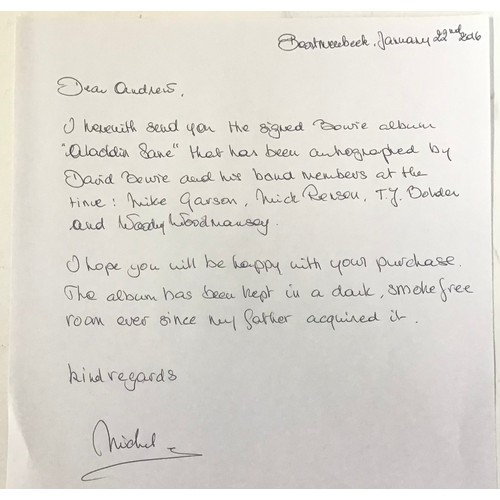 Boortmeerbeek, January 22nd 2016
Dear Andrew,
I herewith send you the signed Bowie album
"Aladdin Sane" that has been autographed by
David Bowie and his band members at the
time: Mike Garson, Mick Ronson, T.J. Bolder
and Woody Woodmansey.
I hope you will be happy with your purchase.
The album has been kept in a dark, smokefree
room ever since my father acquired it.
kind regards
Michel